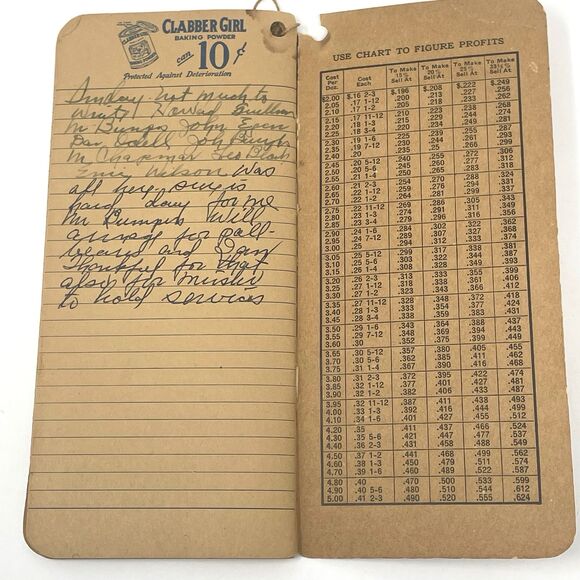 CLABBER GIRL
BAKING POWDER
CLABBER GIRL
can 10¢
Protected Against Deterioration
Sunday not much to
write Howard
Mr Bumps John
Dan Odell Joe
Mr Chapman
Emery Wilson was
all here
hard day for me
Mr Bumpus Will
for pall-
and I am
thankful for that
also for
to hold services
USE CHART TO FIGURE PROFITS
Cost Per Doz. Cost Each To Make 15% Sell At To Make 20% Sell At To Make 25% Sell At To Make 33⅓% Sell At
$2.00 $.16 2-3 $.196 $.208 $.222 $.249
2.05 .17 1-12 .200 .213 .227 .256
2.10 .17 1-2 .205 .218 .233 .262
2.15 .17 11-12 .210 .223 .238 .268
2.20 .18 1-3 .215 .229 .244 .274
2.25 .18 3-4 .219 .234 .249 .281
2.30 .19 1-6 .225 .239 .255 .287
2.35 .19 7-12 .230 .244 .261 .293
2.40 .20 .235 .250 .266 .299
2.45 .20 5-12 .240 .255 .272 .306
2.50 .20 5-6 .245 .260 .277 .312
2.55 .21 1-4 .250 .265 .283 .318
2.60 .21 2-3 .254 .270 .288 .324
2.65 .22 1-12 .259 .275 .294 .331
2.70 .22 1-2 .264 .281 .299 .337
2.75 .22 11-12 .269 .286 .305 .343
2.80 .23 1-3 .274 .291 .311 .349
2.85 .23 3-4 .279 .296 .316 .356
2.90 .24 1-6 .284 .302 .322 .362
2.95 .24 7-12 .289 .307 .327 .368
3.00 .25 .293 .312 .333 .374
3.05 .25 5-12 .298 .317 .338 .381
3.10 .25 5-6 .303 .322 .344 .387
3.15 .26 1-4 .308 .328 .349 .393
3.20 .26 2-3 .313 .333 .355 .399
3.25 .27 1-12 .318 .338 .361 .406
3.30 .27 1-2 .323 .343 .366 .412
3.35 .27 11-12 .328 .348 .372 .418
3.40 .28 1-3 .333 .353 .377 .424
3.45 .28 3-4 .338 .359 .383 .431
3.50 .29 1-6 .343 .364 .388 .437
3.55 .29 7-12 .348 .369 .394 .443
3.60 .30 .352 .375 .399 .449
3.65 .30 5-12 .357 .380 .405 .455
3.70 .30 5-6 .362 .385 .411 .462
3.75 .31 1-4 .367 .390 .416 .468
3.80 .31 2-3 .372 .395 .422 .474
3.85 .32 1-12 .377 .401 .427 .481
3.90 .32 1-2 .382 .406 .433 .487
3.95 .32 11-12 .387 .411 .438 .493
4.00 .33 1-3 .392 .416 .444 .499
4.10 .34 1-6 .402 .427 .455 .512
4.20 .35 .411 .437 .466 .524
4.30 .35 5-6 .421 .447 .477 .537
4.40 .36 2-3 .431 .458 .488 .549
4.50 .37 1-2 .441 .468 .499 .562
4.60 .38 1-3 .450 .479 .511 .574
4.70 .39 1-6 .460 .489 .522 .587
4.80 .40 .470 .500 .533 .599
4.90 .40 5-6 .480 .510 .544 .612
5.00 .41 2-3 .490 .520 .555 .624